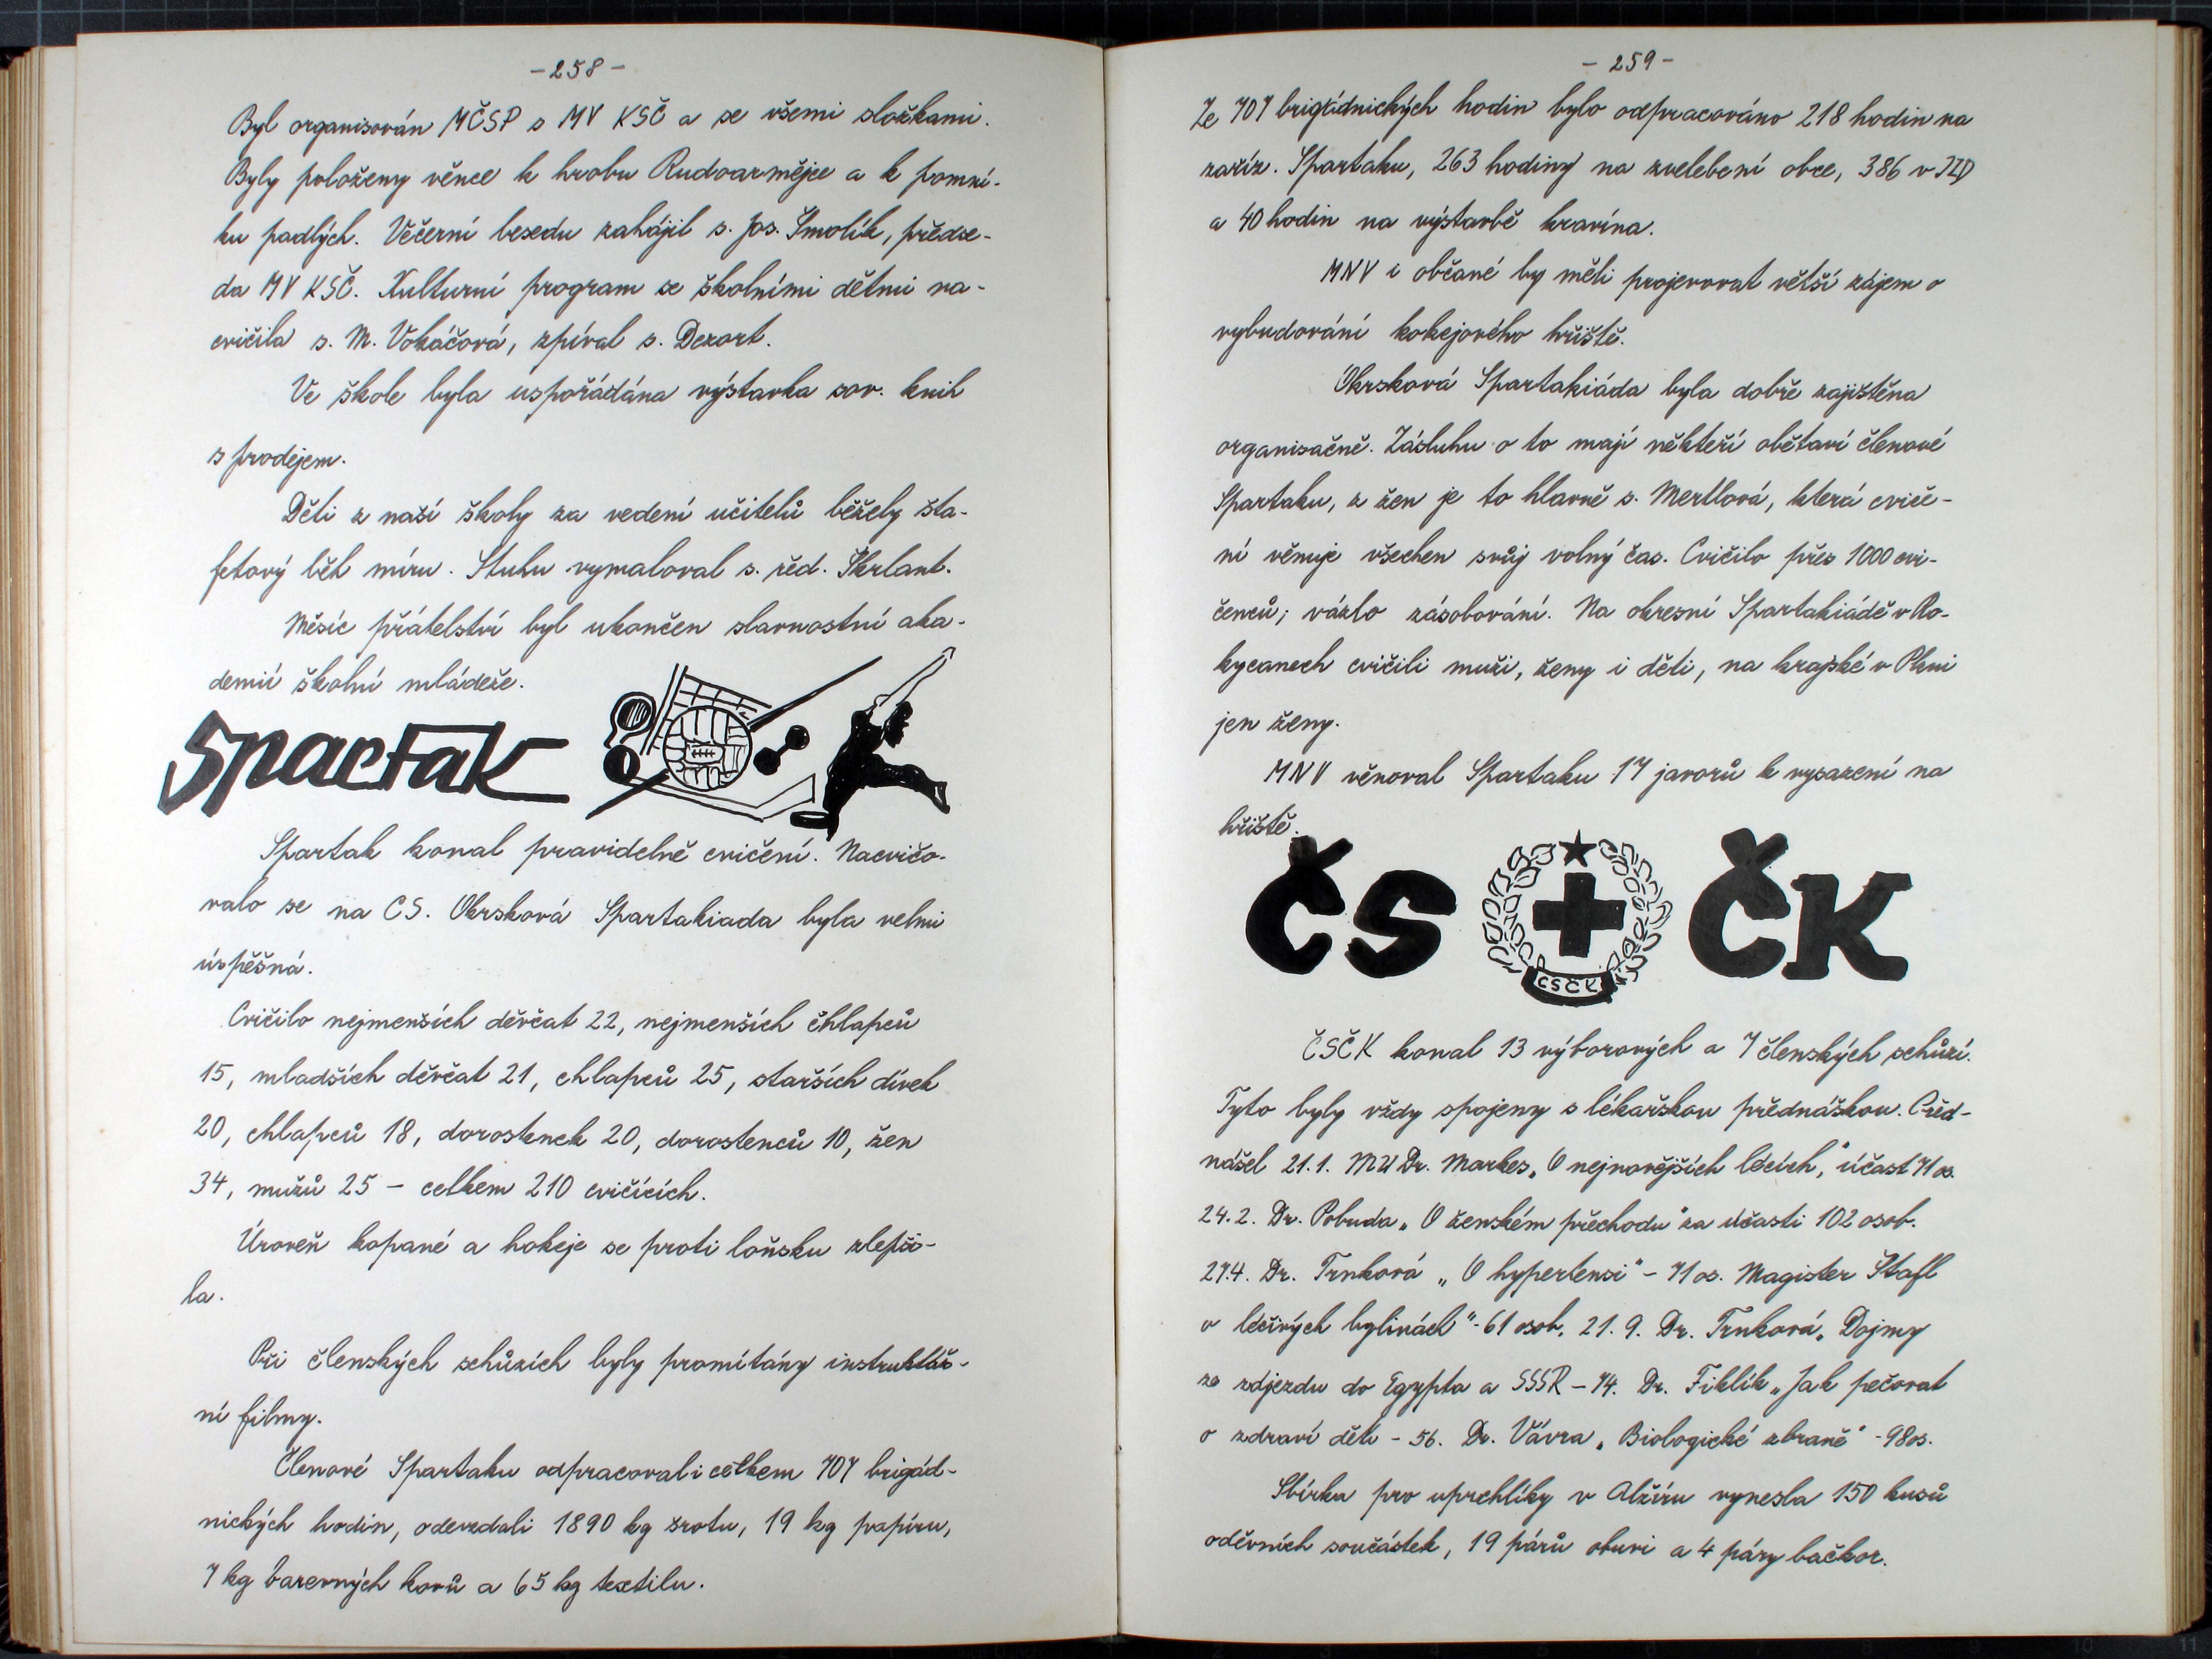 -258-
Byl organisován MČSP s MV KSČ a se všemi složkami.
Byly položeny věnce k hrobu Rudoarmějce a k pomní-
ku padlých. Večerní besedu zahájil s. Jos. Smolík, předse-
da MV KSČ. Kulturní program se školními dětmi na-
cvičila s. M. Vokáčová, zpíval s. Dezort.
Ve škole byla uspořádána výstavka sov. knih
s prodejem.
Děti z naší školy za vedení učitelů běžely šta-
fetový běh míru. Stuhu vymaloval s. řed. Škrlant.
Měsíc přátelství byl ukončen slavnostní aka-
demií školní mládeže.
Spartak
Spartak konal pravidelně cvičení. Nacvičo-
valo se na CS. Okrsková Spartakiada byla velmi
úspěšná.
Cvičilo nejmenších děvčat 22, nejmenších chlapců
15, mladších děvčat 21, chlapců 25, starších dívek
20, chlapců 18, dorostenek 20, dorostenců 10, žen
34, mužů 25 - celkem 210 cvičících.
Úroveň kopané a hokeje se proti loňsku zlepši-
la.
Při členských schůzích byly promítány instruktáž-
ní filmy.
Členové Spartaku odpracovali celkem 707 brigád-
nických hodin, odevzdali 1890 kg šrotu, 19 kg papíru,
7 kg barevných kovů a 65 kg textilu.
- 259 -
Ze 707 brigádnických hodin bylo odpracováno 218 hodin na
zaříz. Spartaku, 263 hodiny na zvelebení obce, 386 v JZD
a 40 hodin na výstavbě kravína.
MNV i občané by měli projevovat větší zájem o
vybudování hokejového hřiště.
Okrsková Spartakiáda byla dobře zajištěna
organisačně. Zásluhu o to mají někteří obětaví členové
Spartaku, z žen je to hlavně s. Mertlová, která cviče-
ní věnuje všechen svůj volný čas. Cvičilo přes 1000 cvi-
čenců; vázlo zásobování. Na okresní Spartakiádě v Ro-
kycanech cvičili muži, ženy i děti, na krajské v Plzni
jen ženy.
MNV věnoval Spartaku 17 javorů k vysazení na
hřiště.
ČS ČK
CSČK
ČSČK konal 13 výborových a 7 členských schůzí.
Tyto byly vždy spojeny s lékařskou přednáškou. Před-
nášel 21.1. MUDr. Markes „O nejnovějších lécích," účast 71 os.
24.2. Dr. Pobuda „O ženském přechodu" za účasti 102 osob.
27.4. Dr. Trnková „O hypertensi" - 71 os. Magister Štafl
o léčivých bylinách" - 61 osob, 21.9. Dr. Trnková „Dojmy
ze zdjezdu do Egypta a SSSR - 74. Dr. Fiklík „Jak pečovat
o zdraví dětí - 56. Dr. Vávra „Biologické zbraně" - 98 os.
Sbírka pro uprchlíky v Alžíru vynesla 150 kusů
oděvních součástek, 19 párů obuvi a 4 páry bačkor.